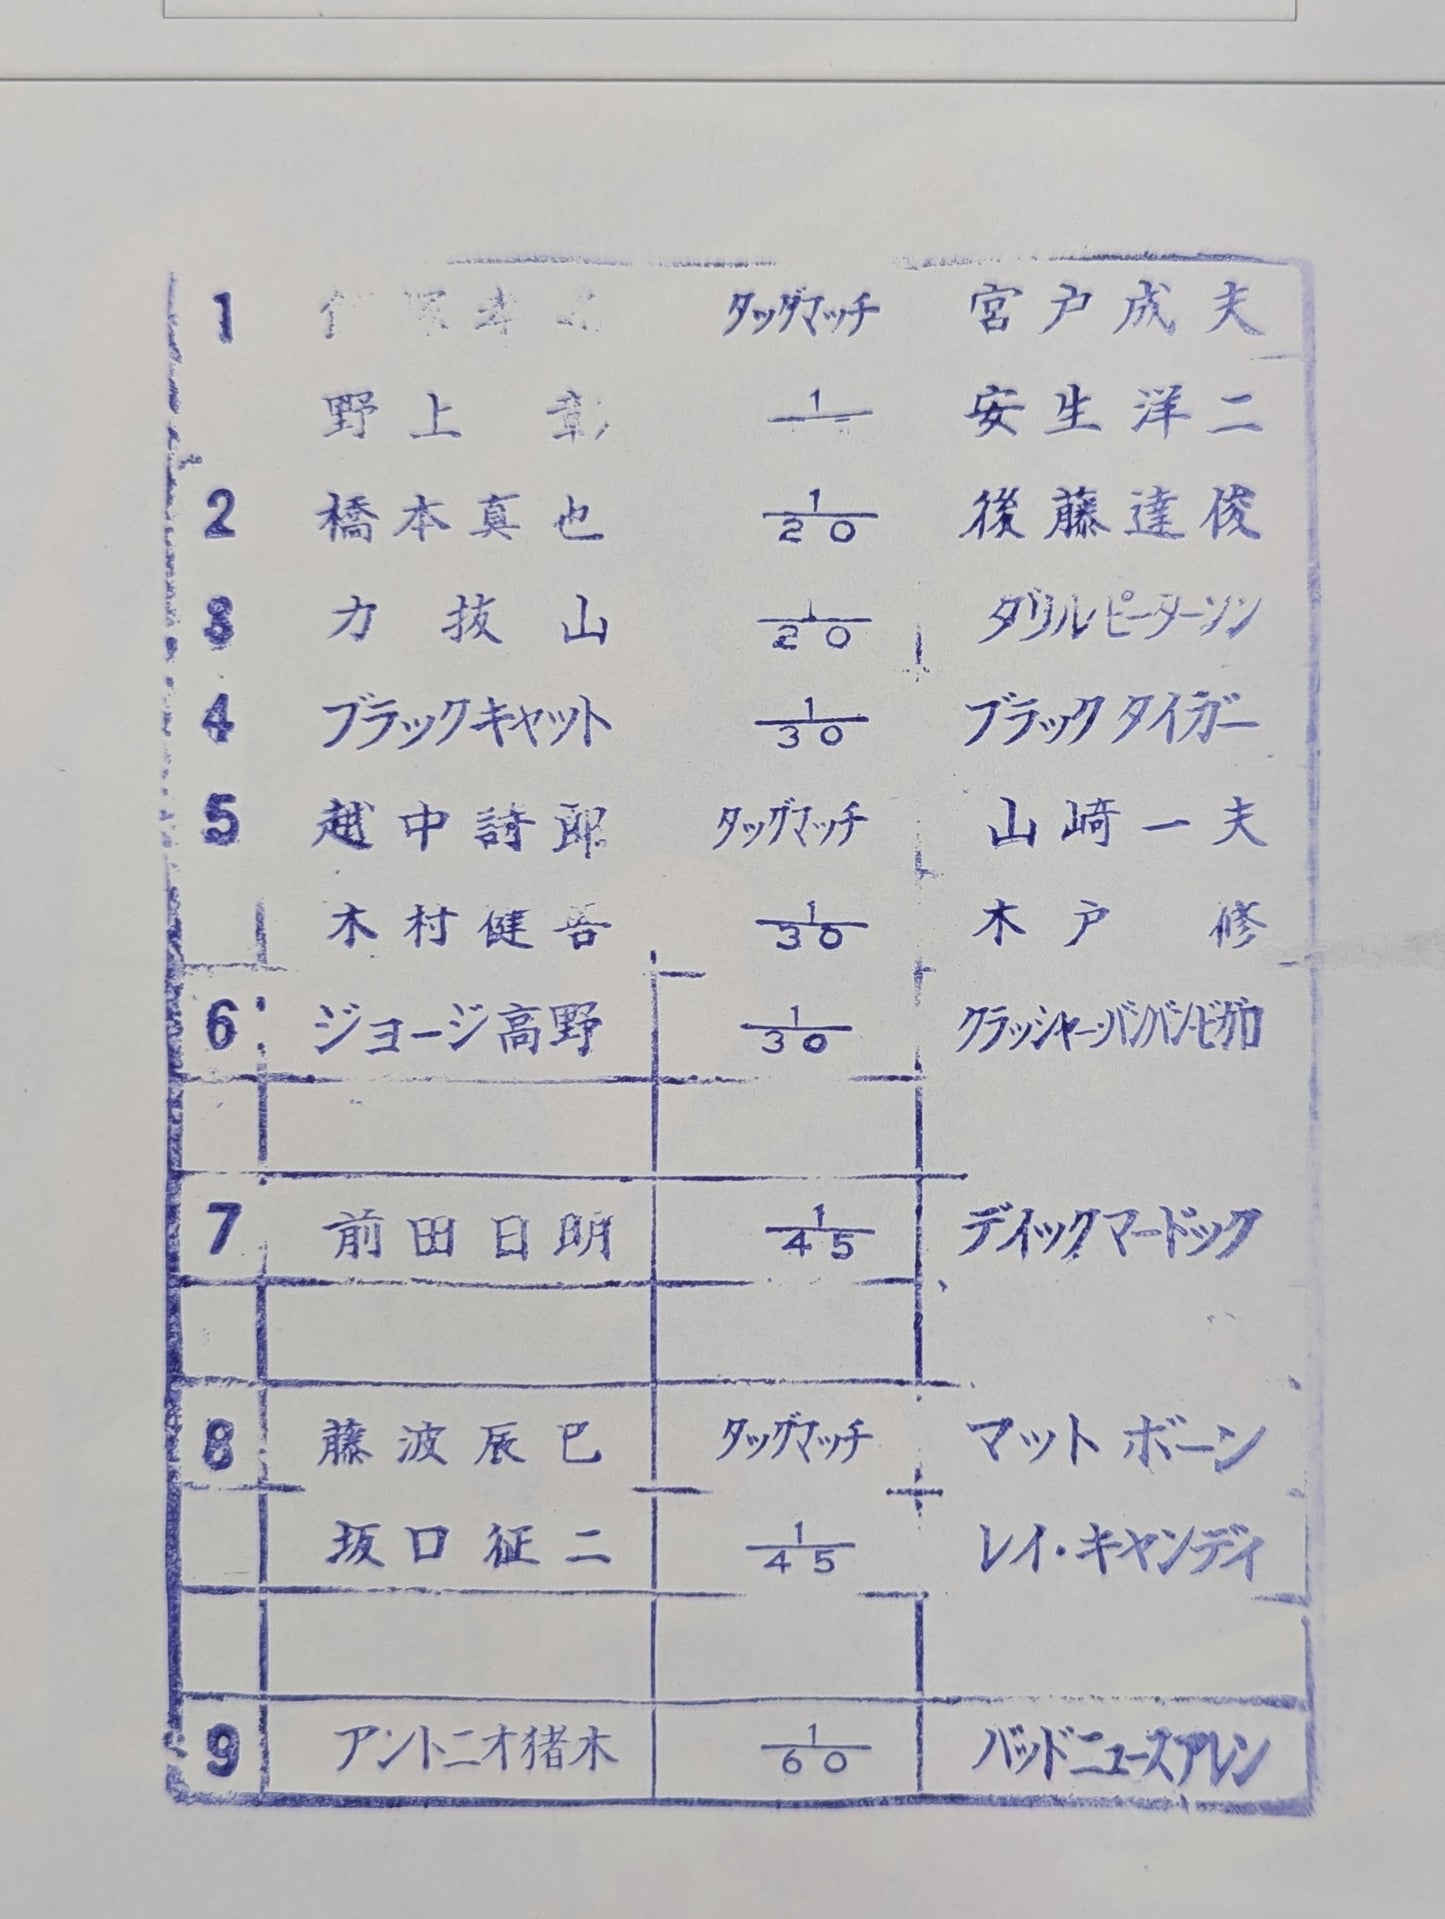 1 タッグマッチ 宮戸成夫
野上 彰 1 安生洋二
2 橋本真也 1/20 後藤達俊
3 力抜山 1/20 ダリルピーターソン
4 ブラックキャット 1/30 ブラックタイガー
5 越中詩郎 タッグマッチ 山崎一夫
木村健吾 1/30 木戸 修
6 ジョージ高野 1/30 クラッシャー・バンバン・ビガロ
7 前田日明 1/45 ディックマードック
8 藤波辰巳 タッグマッチ マット ボーン
坂口征二 1/45 レイ・キャンディ
9 アントニオ猪木 1/60 バッドニュースアレン